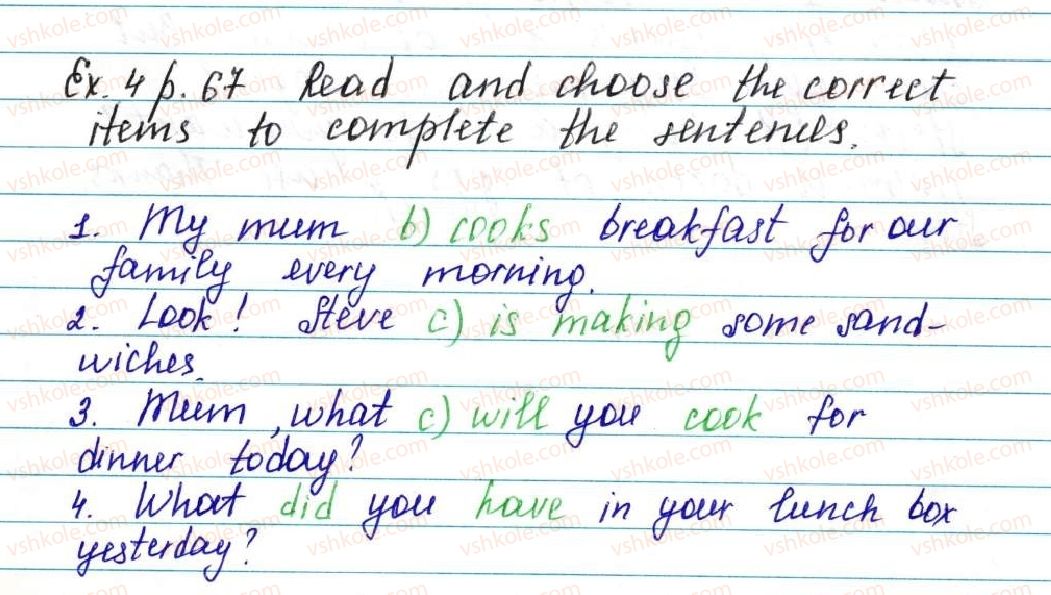 Ex. 4 p. 67 Read and choose the correct
items to complete the sentences.
1. My mum b) cooks breakfast for our
family every morning.
2. Look! Steve c) is making some sand-
wiches.
3. Mum, what c) will you cook for
dinner today?
4. What did you have in your lunch box
yesterday?